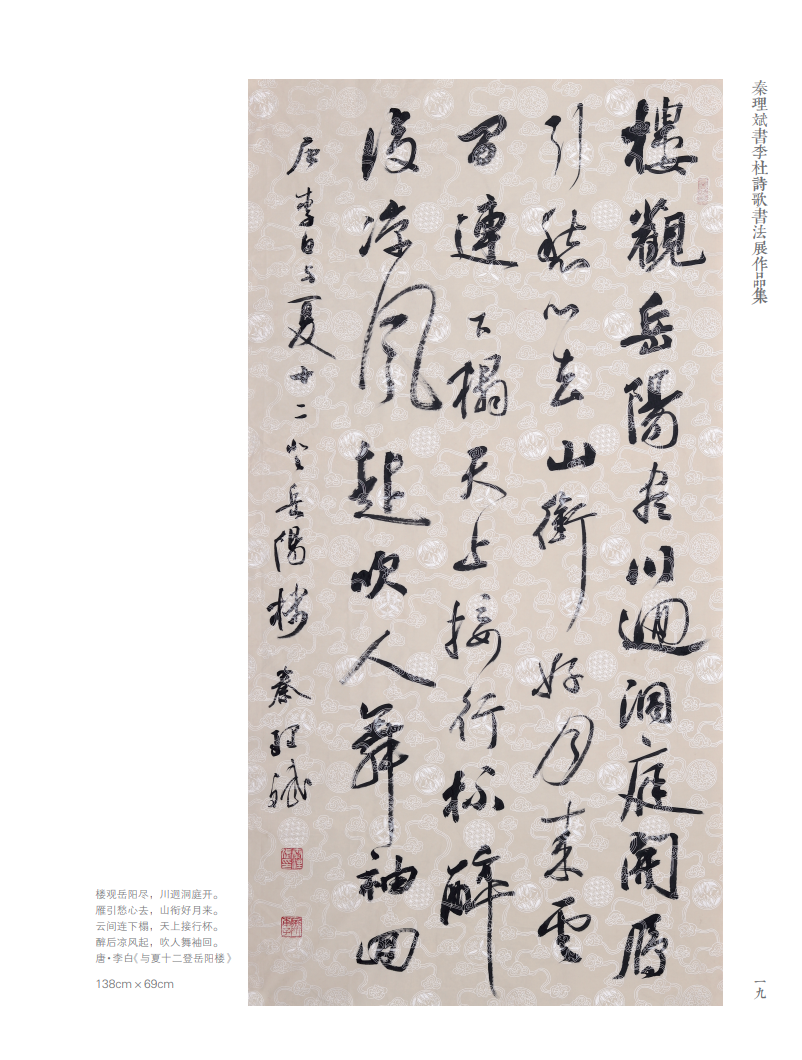 秦理斌書李杜詩歌書法展作品集
樓觀岳陽盡川迥洞庭開雁
引愁心去山銜好月來雲
間連下榻天上接行杯醉
後凉風起吹人舞袖回
唐李白与夏十二登岳陽楼 秦理斌
楼观岳阳尽，川迥洞庭开。
雁引愁心去，山衔好月来。
云间连下榻，天上接行杯。
醉后凉风起，吹人舞袖回。
唐·李白《与夏十二登岳阳楼》
138cm×69cm
一九